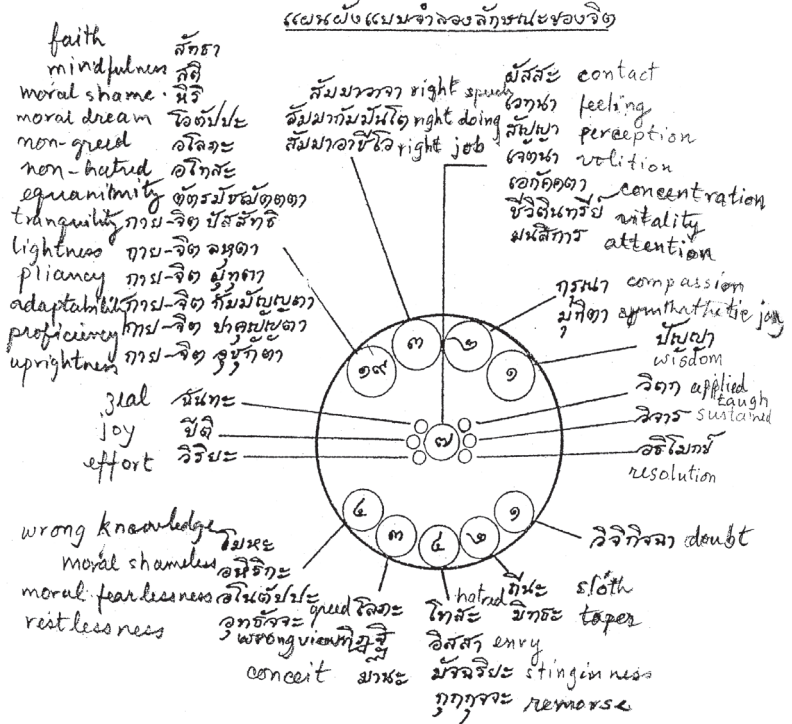 แผนผังแบบจำลองลักษณะของจิต
faith สัทธา
mindfulness สติ
moral shame หิริ
moral dream โอตัปปะ
non-greed อโลภะ
non-hatred อโทสะ
equanimity ตัตรมัชฌัตตตา
tranquility กาย-จิต ปัสสัทธิ
lightness กาย-จิต ลหุตา
pliancy กาย-จิต มุทุตา
adaptability กาย-จิต กัมมัญญตา
proficiency กาย-จิต ปาคุญญตา
uprightness กาย-จิต อุชุกตา
สัมมาวาจา right speech
สัมมากัมมันโต right doing
สัมมาอาชีโว right job
ผัสสะ contact
เวทนา feeling
สัญญา perception
เจตนา volition
เอกัคคตา concentration
ชีวิตินทรีย์ vitality
มนสิการ attention
กรุณา compassion
มุทิตา sympathetic joy
ปัญญา
wisdom
๑๙
๓
๒
๑
zeal ฉันทะ
joy ปีติ
effort วิริยะ
๗
วิตก applied
taugh
วิจาร sustained
อธิโมกข์
resolution
๔
๓
๔
๒
๑
วิจิกิจฉา doubt
wrong knowledge โมหะ
moral shameless อหิริกะ
moral fearlessness อโนตัปปะ
restlessness อุทธัจจะ
greed โลภะ
wrong view ทิฏฐิ
conceit มานะ
hatred โทสะ
อิสสา envy
มัจฉริยะ stinginness
กุกกุจจะ remorse
ถีนะ sloth
มิทธะ toper